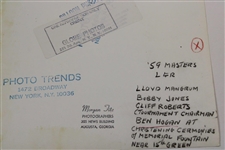 PHOTO TRENDS
1472 BROADWAY
NEW YORK, N.Y. 10036
Morgan Fitz
PHOTOGRAPHERS
AUGUSTA, GEORGIA
X
'59 MASTERS
L & R
LLOYD MANGRUM
BOBBY JONES
CLIFF ROBERTS
(TOURNAMENT CHAIRMAN)
BEN HOGAN AT
CHRISTENING CEREMONIES
OF MEMORIAL FOUNTAIN
NEAR 16TH GREEN